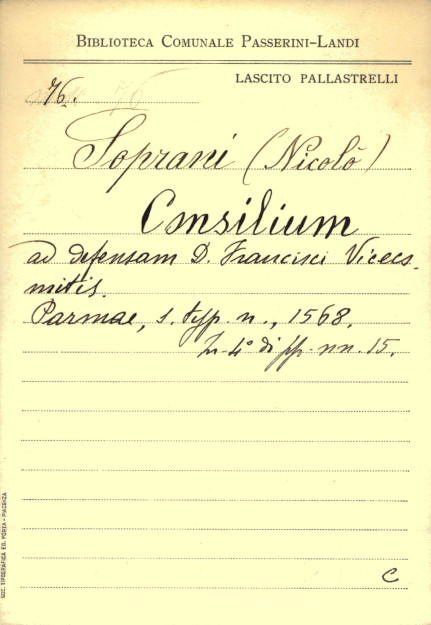 BIBLIOTECA COMUNALE PASSERINI-LANDI
LASCITO PALLASTRELLI
76.
Soprani (Nicolò)
Consilium
ad defensam D. Francisci Vicecs-
mitis.
Parmae, s. typ. n., 1568.
In-4° di pp. nn. 15.
C
SOC. TIPOGRAFICA ED. PORTA - PIACENZA